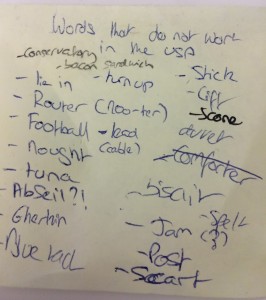 Words that do not work
in the USA
- Conservatory
- bacon sandwich
- lie in
- turnup
- Router (roo-ter)
- Football
- lead
(cable)
- Nought
- tuna
- Abseil?!
- Gherkin
- Blue tack
- Stick
- Gift
- Scone
duvet
- Comforter
- biscuit
- Jam
- Spelt
(?)
- Post